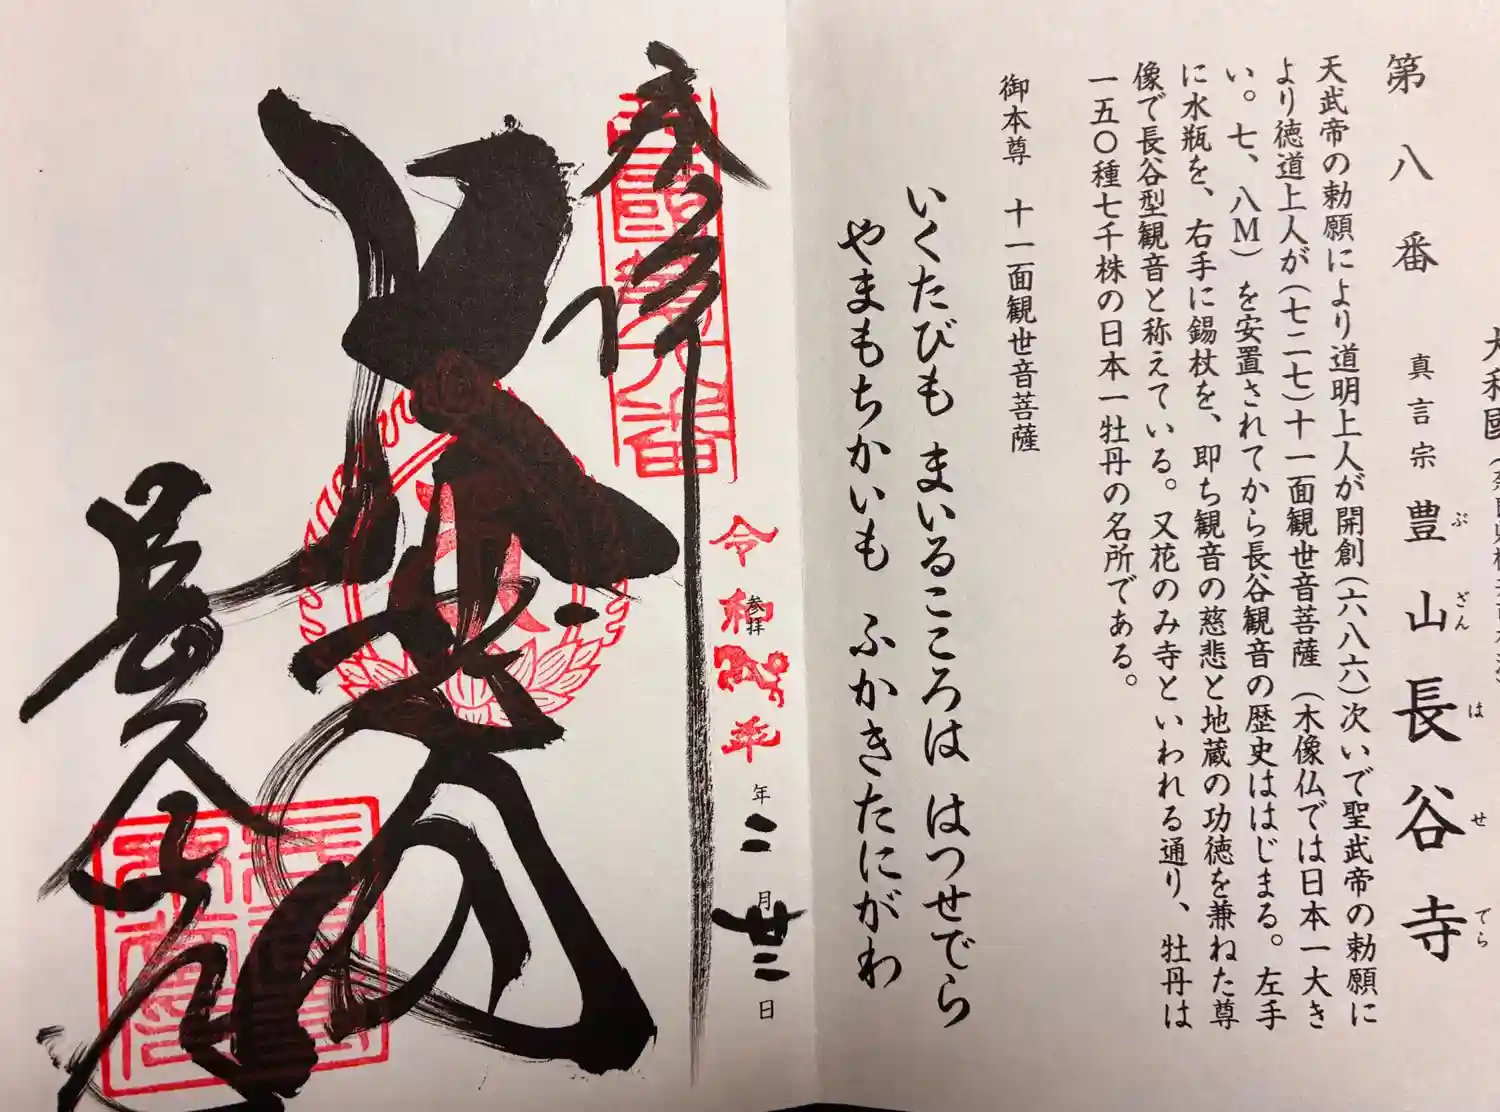 大和國
第八番 真言宗 豊山長谷寺
ぶ ざん は せ でら
天武帝の勅願により道明上人が開創(六八六)次いで聖武帝の勅願に
より徳道上人が(七二七)十一面観世音菩薩(木像仏では日本一大き
い。七、八M)を安置されてから長谷観音の歴史ははじまる。左手
に水瓶を、右手に錫杖を、即ち観音の慈悲と地蔵の功徳を兼ねた尊
像で長谷型観音と称えている。又花のみ寺といわれる通り、牡丹は
一五〇種七千株の日本一牡丹の名所である。
御本尊 十一面観世音菩薩
いくたびも まいるこころは はつせでら
やまもちかいも ふかきたにがわ
奉拝
西国第八番
令和 年
参拝 年 二 月 廿二 日
大悲閣
長谷寺